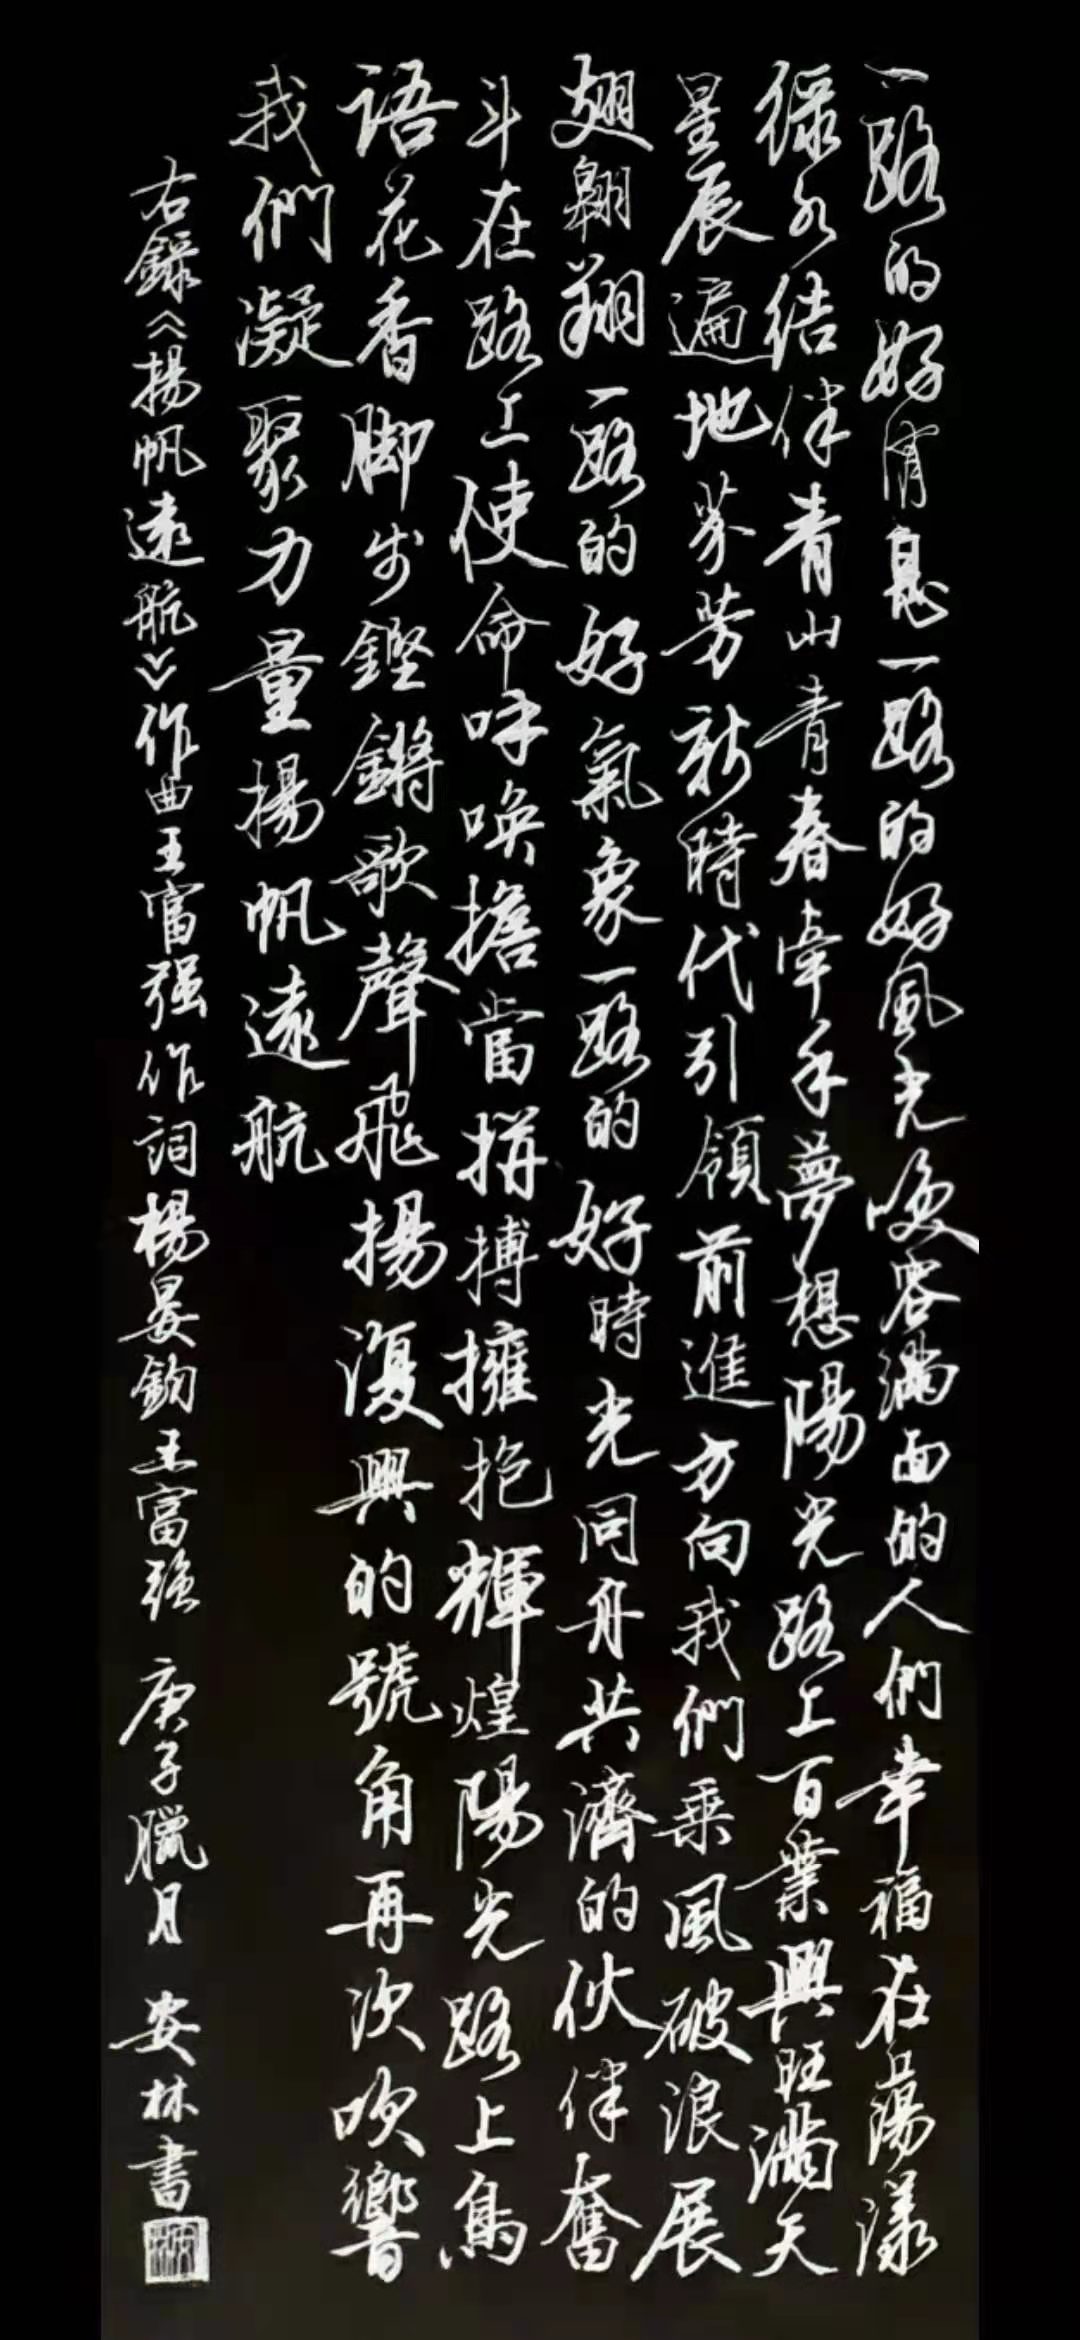 一路的好消息一路的好風光喚容滿面的人們幸福在蕩漾
綠水结伴青山青春牽手夢想陽光路上百業興旺滿天
星辰遍地芬芳新時代引領前進方向我們乘風破浪展
翅翱翔一路的好氣象一路的好時光同舟共濟的伙伴奮
斗在路上使命呼喚擔當拼搏擁抱輝煌陽光路上鳥
語花香脚步鏗鏘歌聲飛揚復興的號角再次吹響
我們凝聚力量揚帆遠航
右錄《揚帆遠航》作曲王富强作詞楊晏鈞王富强 庚子臘月 安林書